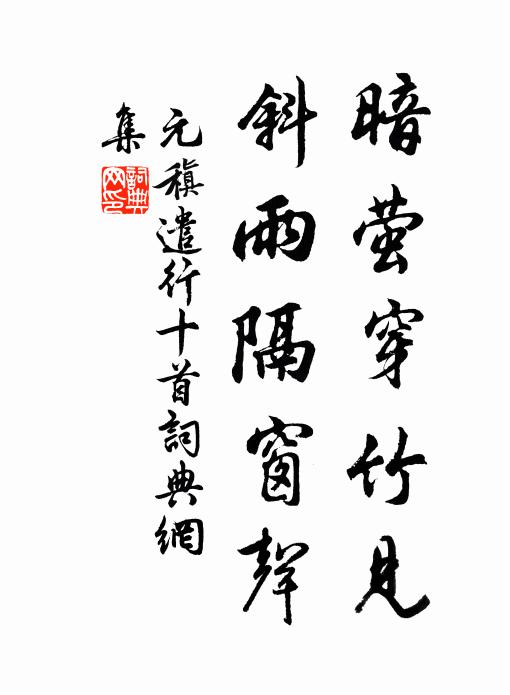 暗萤穿竹見
斜雨隔窗聲
元稹遣行十首詞典網
集
詞典网印